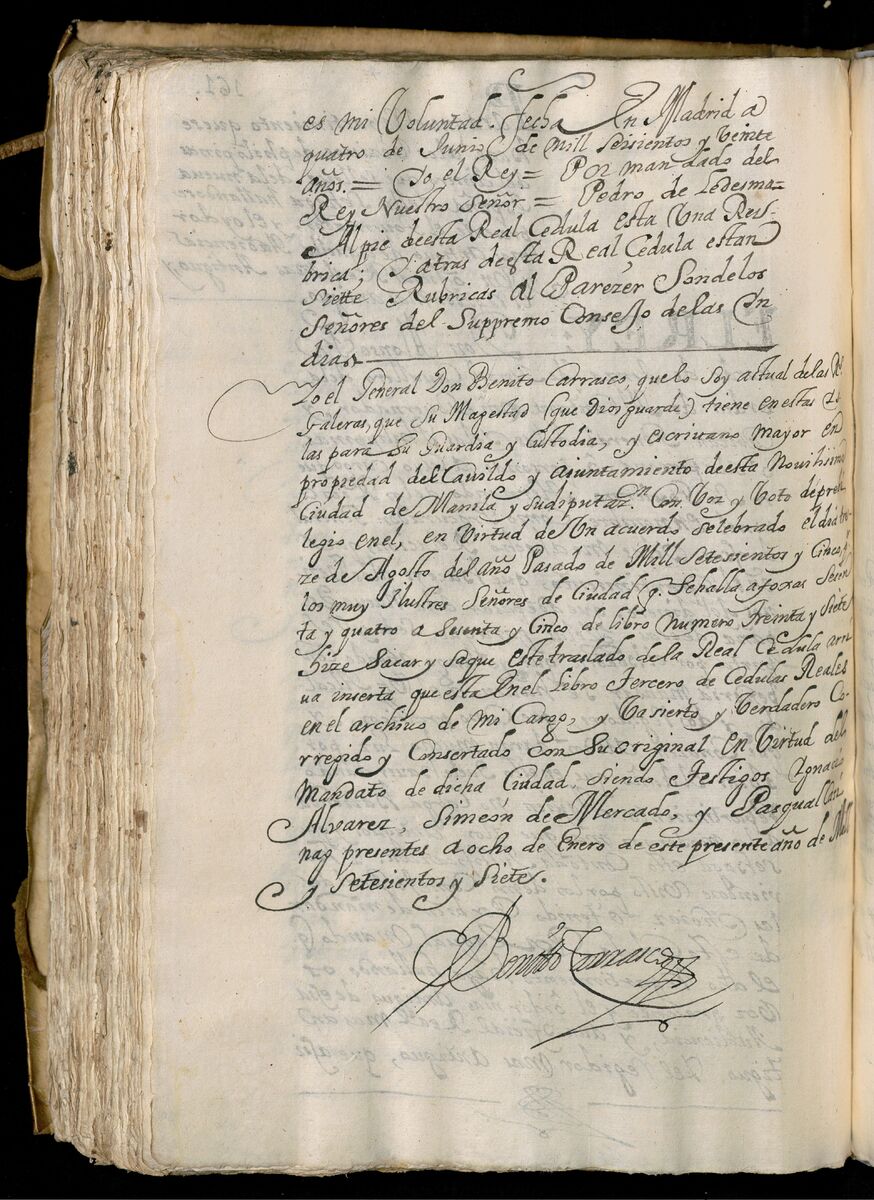 es mi Voluntad. fecha En Madrid a
quatro de Junio de mill seisientos y veinte
años. = Yo el Rey = Por mandado del
Rey Nuestro Señor = Pedro de Ledesma=
Al pie de esta Real Cedula esta Una Ru-
brica; Y atras de esta Real Cedula estan
siette Rubricas al Parezer Son de los
Señores del Suppremo Consejo de las In
dias
Yo el General Don Benito Carrasco, que lo soy actual de las Rs
Galeras, que Su Magestad (que Dios guarde) tiene en estas Is
las para Su Guardia y Custodia, y escrivano mayor en
propiedad del Cavildo y ajuntamiento de esta Novilisima
Ciudad de Manila y su diputaz.n Con Voz y Voto de previ
legio en el, en Virtud de Un acuerdo selebrado el dia tre-
ze de Agosto del año Pasado de Mill Setesientos y Cinco, p.r
los muy Ilustres Señores de Ciudad q. Se halla a foxas Sesen
ta y quatro a Sesenta y Cinco de libro Numero Treinta y Siete
hize Sacar y saque este traslado de la Real Cedula arri
va inserta que esta En el Libro Tercero de Cedulas Reales
en el archivo de mi Cargo, y Va sierto y Verdadero Co-
rregido y Consertado con Su original En Virtud del
Mandato de dicha Ciudad, siendo Testigos Ignacio
Alvarez, Simeón de Mercado, y Pasqual
nag presentes a ocho de Enero de este presente año de Mill
y Setesientos y Siete.
Benito Carrasco